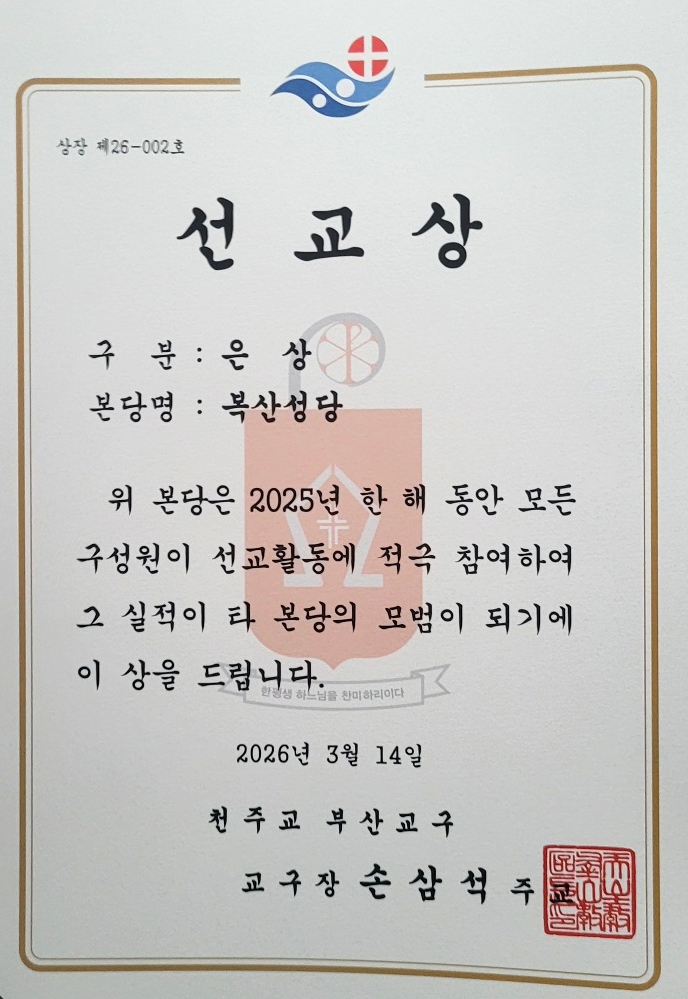 상장 제26-002호
선 교 상
구 분 : 은 상
본당명 : 복산성당
위 본당은 2025년 한 해 동안 모든
구성원이 선교활동에 적극 참여하여
그 실적이 타 본당의 모범이 되기에
이 상을 드립니다.
한평생 하느님을 찬미하리이다
2026년 3월 14일
천주교 부산교구
교구장 손삼석 주교